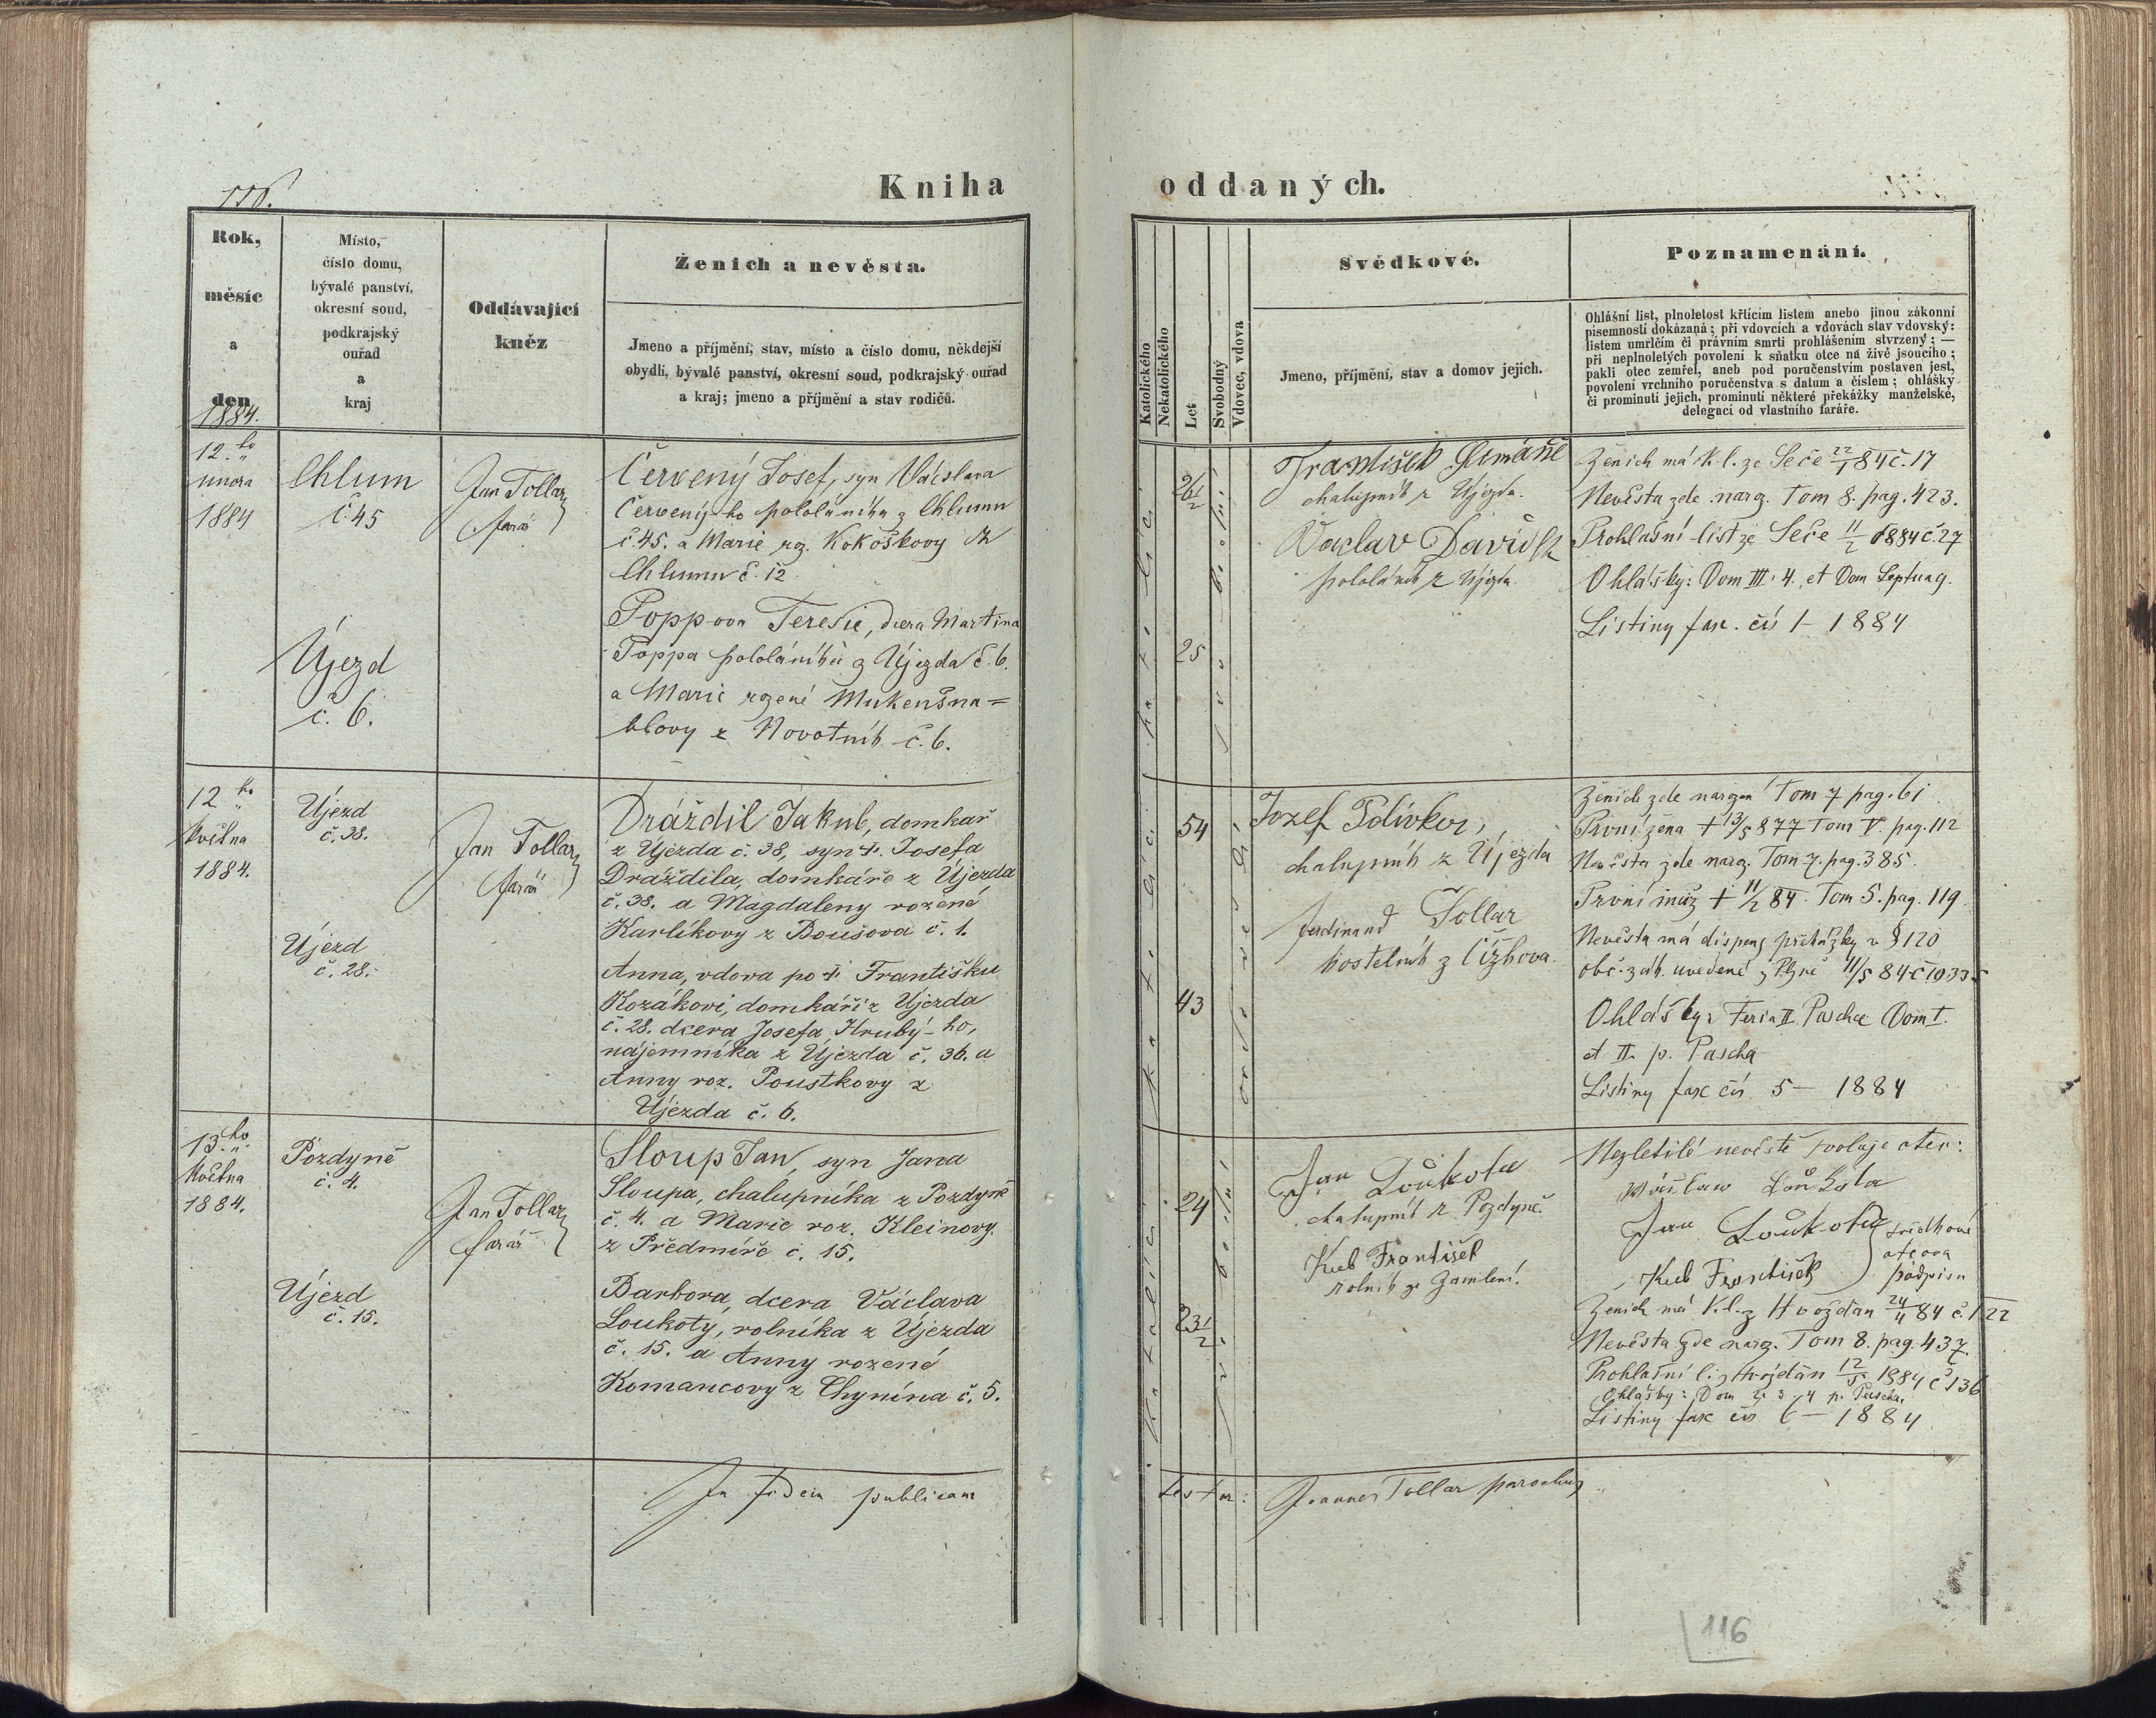 116.
Kniha
oddaných.
Rok,
měsíc
a
den
1884.
Místo,
číslo domu,
bývalé panství,
okresní soud,
podkrajský
ouřad
a
kraj
Oddávající
kněz
Ženich a nevěsta.
Jmeno a příjmění, stav, místo a číslo domu, někdejší
obydlí, bývalé panství, okresní soud, podkrajský ouřad
a kraj; jmeno a příjmění a stav rodičů.
Katolického
Nekatolického
Let
Svobodný
Vdovec, vdova
Svědkové.
Jmeno, příjmění, stav a domov jejich.
Poznamenání.
Ohlášní list, plnoletost křtícím listem anebo jinou zákonní
písemností dokázaná; při vdovcích a vdovách stav vdovský:
listem umrlčím či právním smrti prohlášením stvrzený; —
při neplnoletých povolení k sňatku otce na živě jsoucího;
pakli otec zemřel, aneb pod poručenstvím postaven jest,
povolení vrchního poručenstva s datum a číslem; ohlášky
či prominutí jejich, prominutí některé překážky manželské,
delegací od vlastního faráře.
12.ho
února
1884
Chlum
č. 45
Jan Tollar
farář
Červený Josef, syn Václava
Červený-ho pololáníka z Chlumu
č. 45. a Marie rz. Kokoškovy z
Chlumu č. 12.
Újezd
č. 6.
Poppova Teresie, dcera Martina
Poppa pololáníka z Újezda č. 6.
a Marie rzené Mukenšna=
blovy z Novotník č. 6.
katolíci
26 1/2
25
svobodní
František
chalupník z Újezda.
Vaclav David
pololáník z Újezda.
Ženich má k. l. ze Seče 22/1 84 č. 17
Nevěsta zde narz. Tom 8. pag. 423.
Prohlašní list ze Seče 11/2 1884 č. 27
Ohlášky: Dom III. 4. et Dom Septuag.
Listiny fasc. čís 1 – 1884
12 ho
května
1884.
Újezd
č. 38.
Jan Tollar
farář
Dráždil Jakub, domkař
z Újezda č. 38, syn † Josefa
Dráždila, domkáře z Újezda
č. 38. a Magdaleny rozené
Karlíkovy z Boušova č. 1.
Újezd
č. 28.
Anna, vdova po † Františku
Kozákovi, domkáři z Újezda
č. 28. dcera Josefa Hrubý-ho,
nájemníka z Újezda č. 36. a
Anny roz. Poustkovy z
Újezda č. 6.
katolíci
54
43
ovdovělí
Jozef Polívka,
chalupník z Újezda
Ferdinand Tollar
kostelník z Čížkova.
Ženich zde narzen Tom 7 pag. 61
První žena † 13/5 877 Tom V. pag. 112
Nevěsta zde narz. Tom 7. pag. 385.
První muž † 11/2 84. Tom 5. pag. 119.
Nevěsta má dispens překážky v § 120
obč. zák. uvedené z Plzně 11/5 84 č. 10335
Ohlášky: Feria II. Paschae Dom I.
et II. p. Pascha
Listiny fasc čís 5 – 1884
13.ho
května
1884.
Pozdyně
č. 4.
Jan Tollar
farář
Sloup Jan, syn Jana
Sloupa, chalupníka z Pozdyně
č. 4. a Marie roz. Kleinovy
z Předmíře č. 15.
Újezd
č. 15.
Barbora, dcera Václava
Loukoty, rolníka z Újezda
č. 15. a Anny rozené
Komancovy z Chynína č. 5.
Katolíci
24
23 1/2
svobodní
Jan Loukota
chalupník z Pozdyně.
Kub František
rolník ze Zamlení.
Nezletilé nevěstě svoluje otec:
Wáclaw Loukota
Jan Loukota svědkové
Kub František otcova
podpisu
Ženich má k. l. z Hvožďan 24/4 84 č. 122
Nevěsta zde narz. Tom 8. pag. 437.
Prohlašní l. z Hvožďan 12/5 1884 č 136
Ohlášky: Dom 2. 3. 4 p. Pascha.
Listiny fasc čís 6 – 1884
In fidem publicam
testor:
Joannes Tollar parochus
116